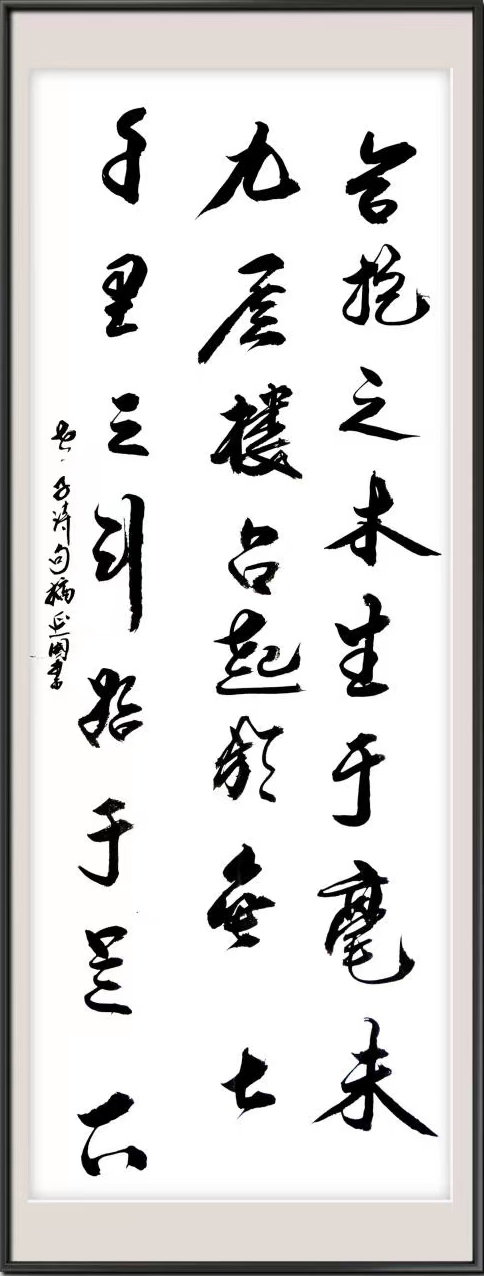 合抱之木生于毫末
九层楼台起於垒土
千里之行始于足下
老子诗句摘延国书